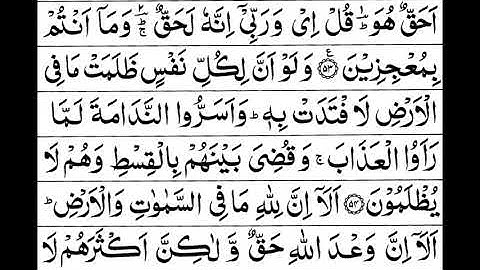 اَحَقٌّ هُوَ ؕ قُلْ اِیْ وَ رَبِّیْۤ اِنَّهٗ لَحَقٌّ ؔۚ وَ مَاۤ اَنْتُمْ
بِمُعْجِزِیْنَ ﴿۵۳﴾ ع وَ لَوْ اَنَّ لِكُلِّ نَفْسٍ ظَلَمَتْ مَا فِی
الْاَرْضِ لَا فْتَدَتْ بِهٖ ؕ وَ اَسَرُّوا النَّدَامَةَ لَمَّا
رَاَوُا الْعَذَابَ ۚ وَ قُضِیَ بَیْنَهُمْ بِالْقِسْطِ وَ هُمْ لَا
یُظْلَمُوْنَ ﴿۵۴﴾ اَلَاۤ اِنَّ لِلّٰهِ مَا فِی السَّمٰوٰتِ وَ الْاَرْضِ ؕ
اَلَاۤ اِنَّ وَعْدَ اللّٰهِ حَقٌّ وَّ لٰكِنَّ اَكْثَرَهُمْ لَا